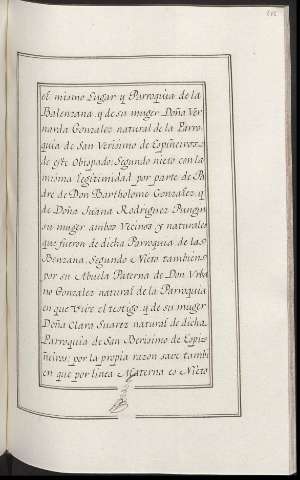 el mismo Lugar y Parroquia de la
Balenzana y de su muger Doña Ver
narda Gonzalez natural de la Parro
quia de San Verisimo de Espiñeiros
de este Obispado: Segundo nieto con la
misma legitimidad por parte de Pa
dre de Don Bartholome Gonzalez y
de Doña Juana Rodriguez Pungin
su muger ambos Vicinos y naturales
que fueron de dicha Parroquia de las
Benzana, Segundo Nieto tambien
por su Abuela Paterna de Don Vrba
no Gonzalez natural de la Parroquia
en que Vive el testigo y de su muger
Doña Clara Suarez natural de dicha
Parroquia de San Berisimo de Espi
ñeiros; por la propia razon save tambi
en que por linea Materna es Nieto